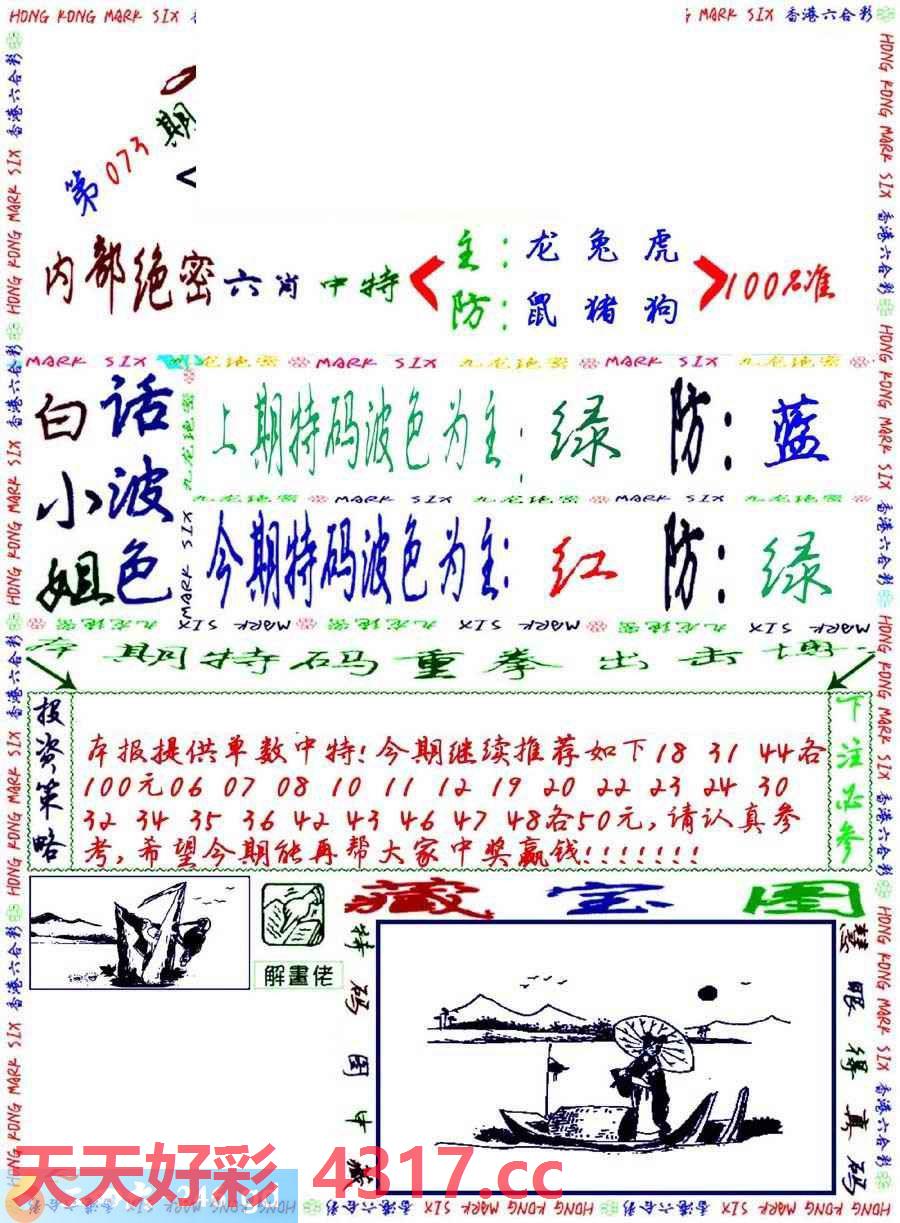 HONG KONG MARK SIX
MARK SIX 香港六合彩
第073期
内部绝密六肖中特
主：龙兔虎
防：鼠猪狗
100%准
MARK SIX 九龙绝密 MARK SIX 九龙绝密 MARK SIX 九龙绝密
白话
小波
姐色
上期特码波色为主：绿 防：蓝
九龙绝密 MARK SIX 九龙绝密 MARK SIX 九龙绝密
今期特码波色为主：红 防：绿
期特码重拳出击
投资策略
本报提供单数中特!今期继续推荐如下18 31 44各
100元06 07 08 10 11 12 19 20 22 23 24 30
32 34 35 36 42 43 46 47 48各50元,请认真参
考,希望今期能再帮大家中奖赢钱!!!!!!!
下注必参
藏宝图
解畫佬
特码图中藏
慧眼得真码
天天好彩 4317.cc
HONG KONG MARK SIX 香港六合彩